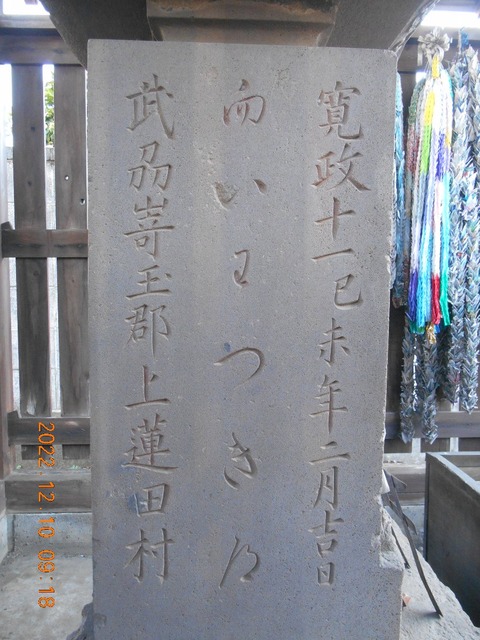 寛政十一己未年二月吉日
而いわつきみ
武刕嵜玉郡上蓮田村
2022 12 10 09:18